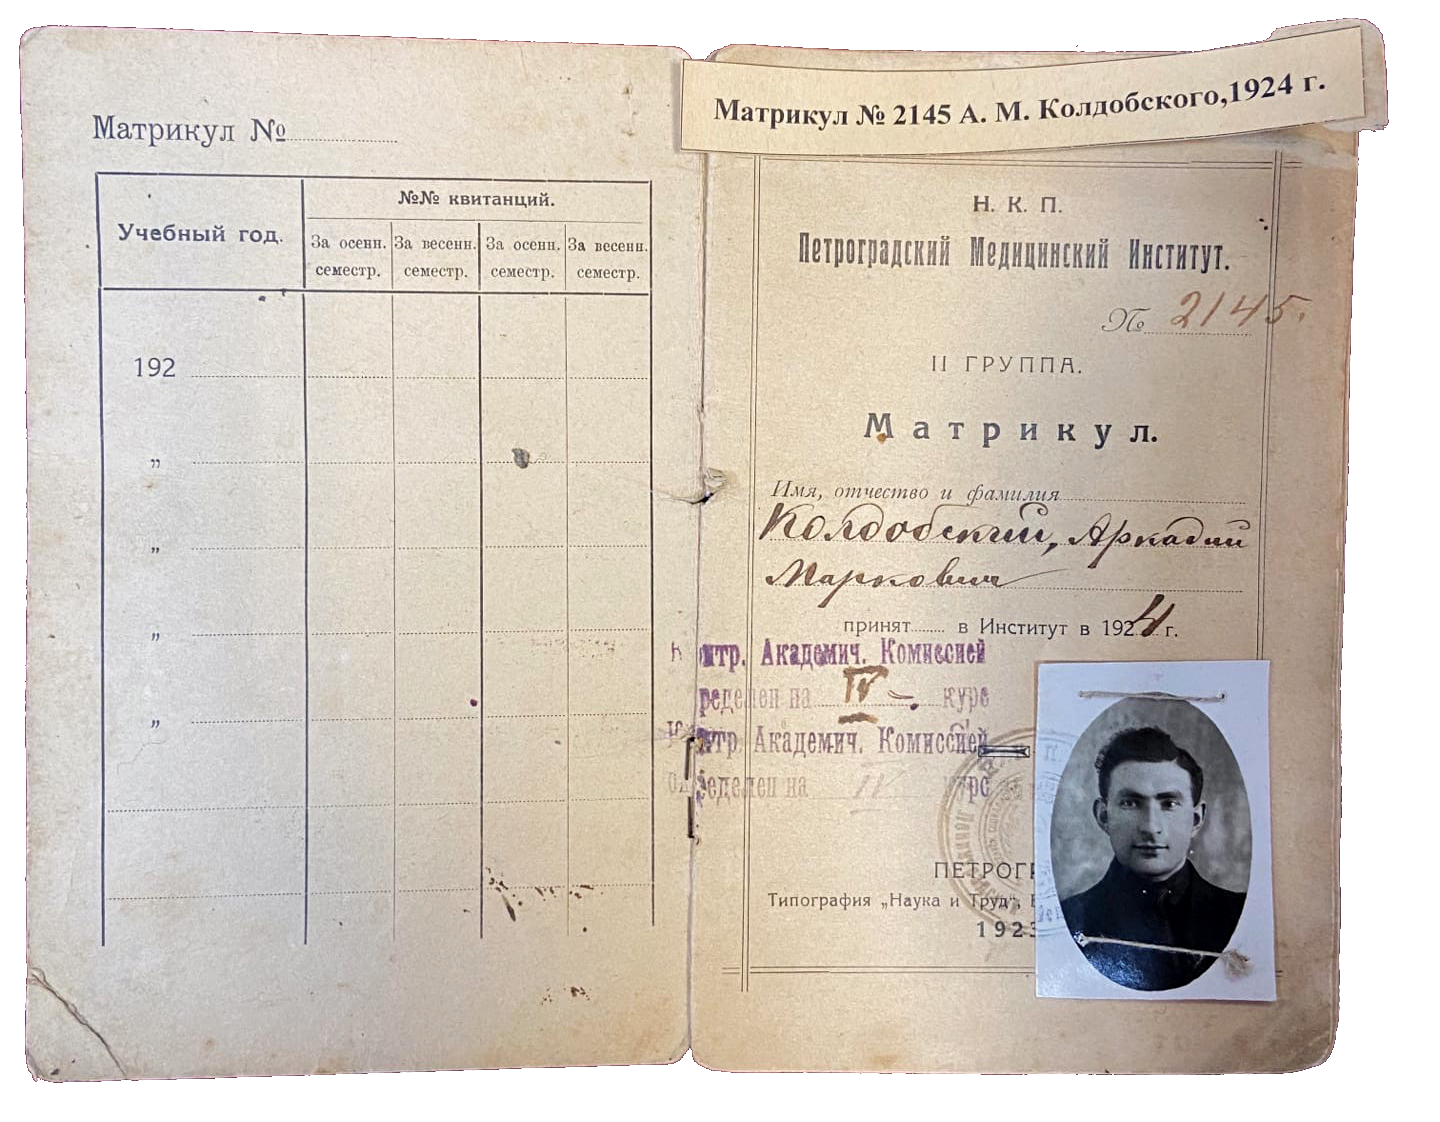 Матрикул №
Учебный год.
№№ квитанций.
За осенн. семестр.
За весенн. семестр.
За осенн. семестр.
За весенн. семестр.
192
„
„
„
„
Матрикул № 2145 А. М. Колдобского,1924 г.
Н. К. П.
Петроградский Медицинский Институт.
№ 2145.
II ГРУППА.
Матрикул.
Имя, отчество и фамилия
Колдобский, Аркадий
Маркович
принят в Институт в 1924 г.
Академич. Комиссией
на IV курс
Академич. Комиссией
на IV
ПЕТРОГР
Типография „Наука и Труд",
1923